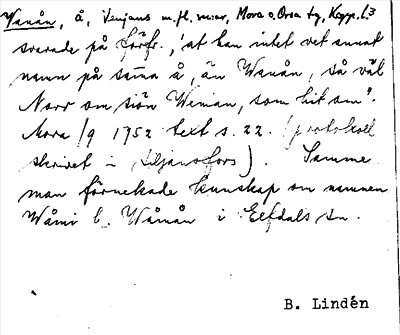 Vanån, å, Venjans m.fl. snr, Mora o. Orsa tg, Kopp. L3
svarade på förfr., "at han intet vet annat
namn på samma å, än Wanån, så väl
Norr om siön Wenian, som hit om".
Mora 1/9 1752 text s. 22. (protokoll
skrivet i Siljansfors). Samme
man förnekade kunskap om namnen
Wåmi l. Wåmån i Elfdals sn.
B. Lindén